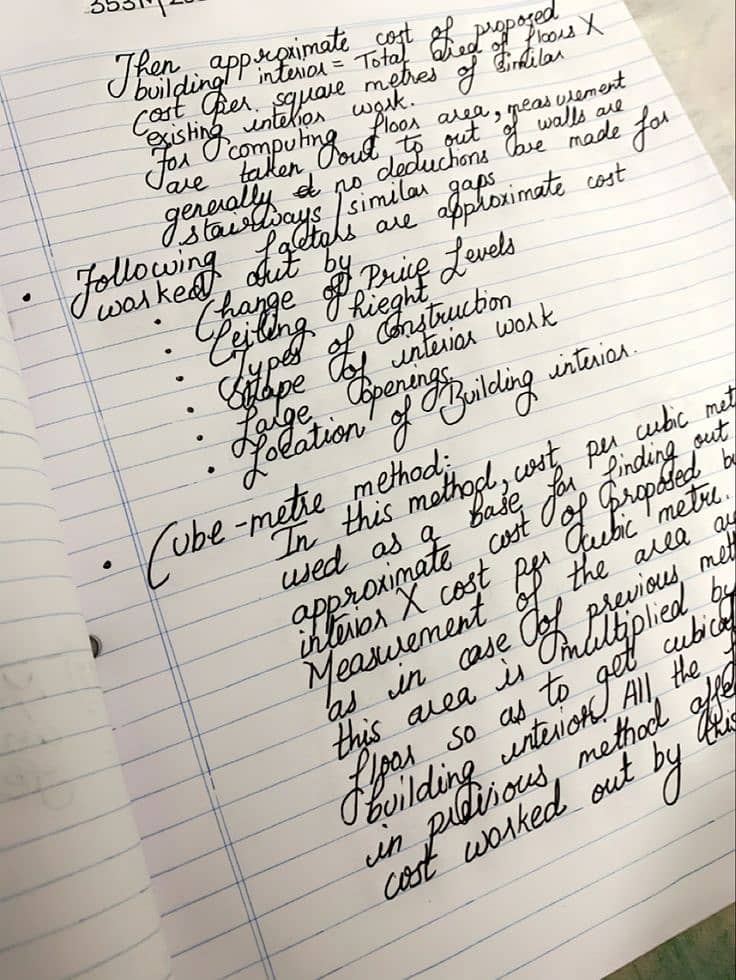 353M/20
Then approximate cost of proposed
building interior = Total area of floors X
cost per square metres of similar
existing interior work.
For computing floor area, measurement
are taken out to out of walls are
generally & no deductions are made for
stairways/similar gaps
• Following factors are approximate cost
worked out by
• Change of Price Levels
• Ceiling hieght
• Types of Construction
• Shape of interior work
• Large Openings
• Location of Building interior.
• Cube-metre method:
In this method, cost per cubic met
used as a base for finding out
approximate cost of proposed bu
interior X cost per cubic metre.
Measurement of the area au
as in case of previous met
this area is multiplied by
floor so as to get cubical
building interior. All the
in previous method affe
cost worked out by this